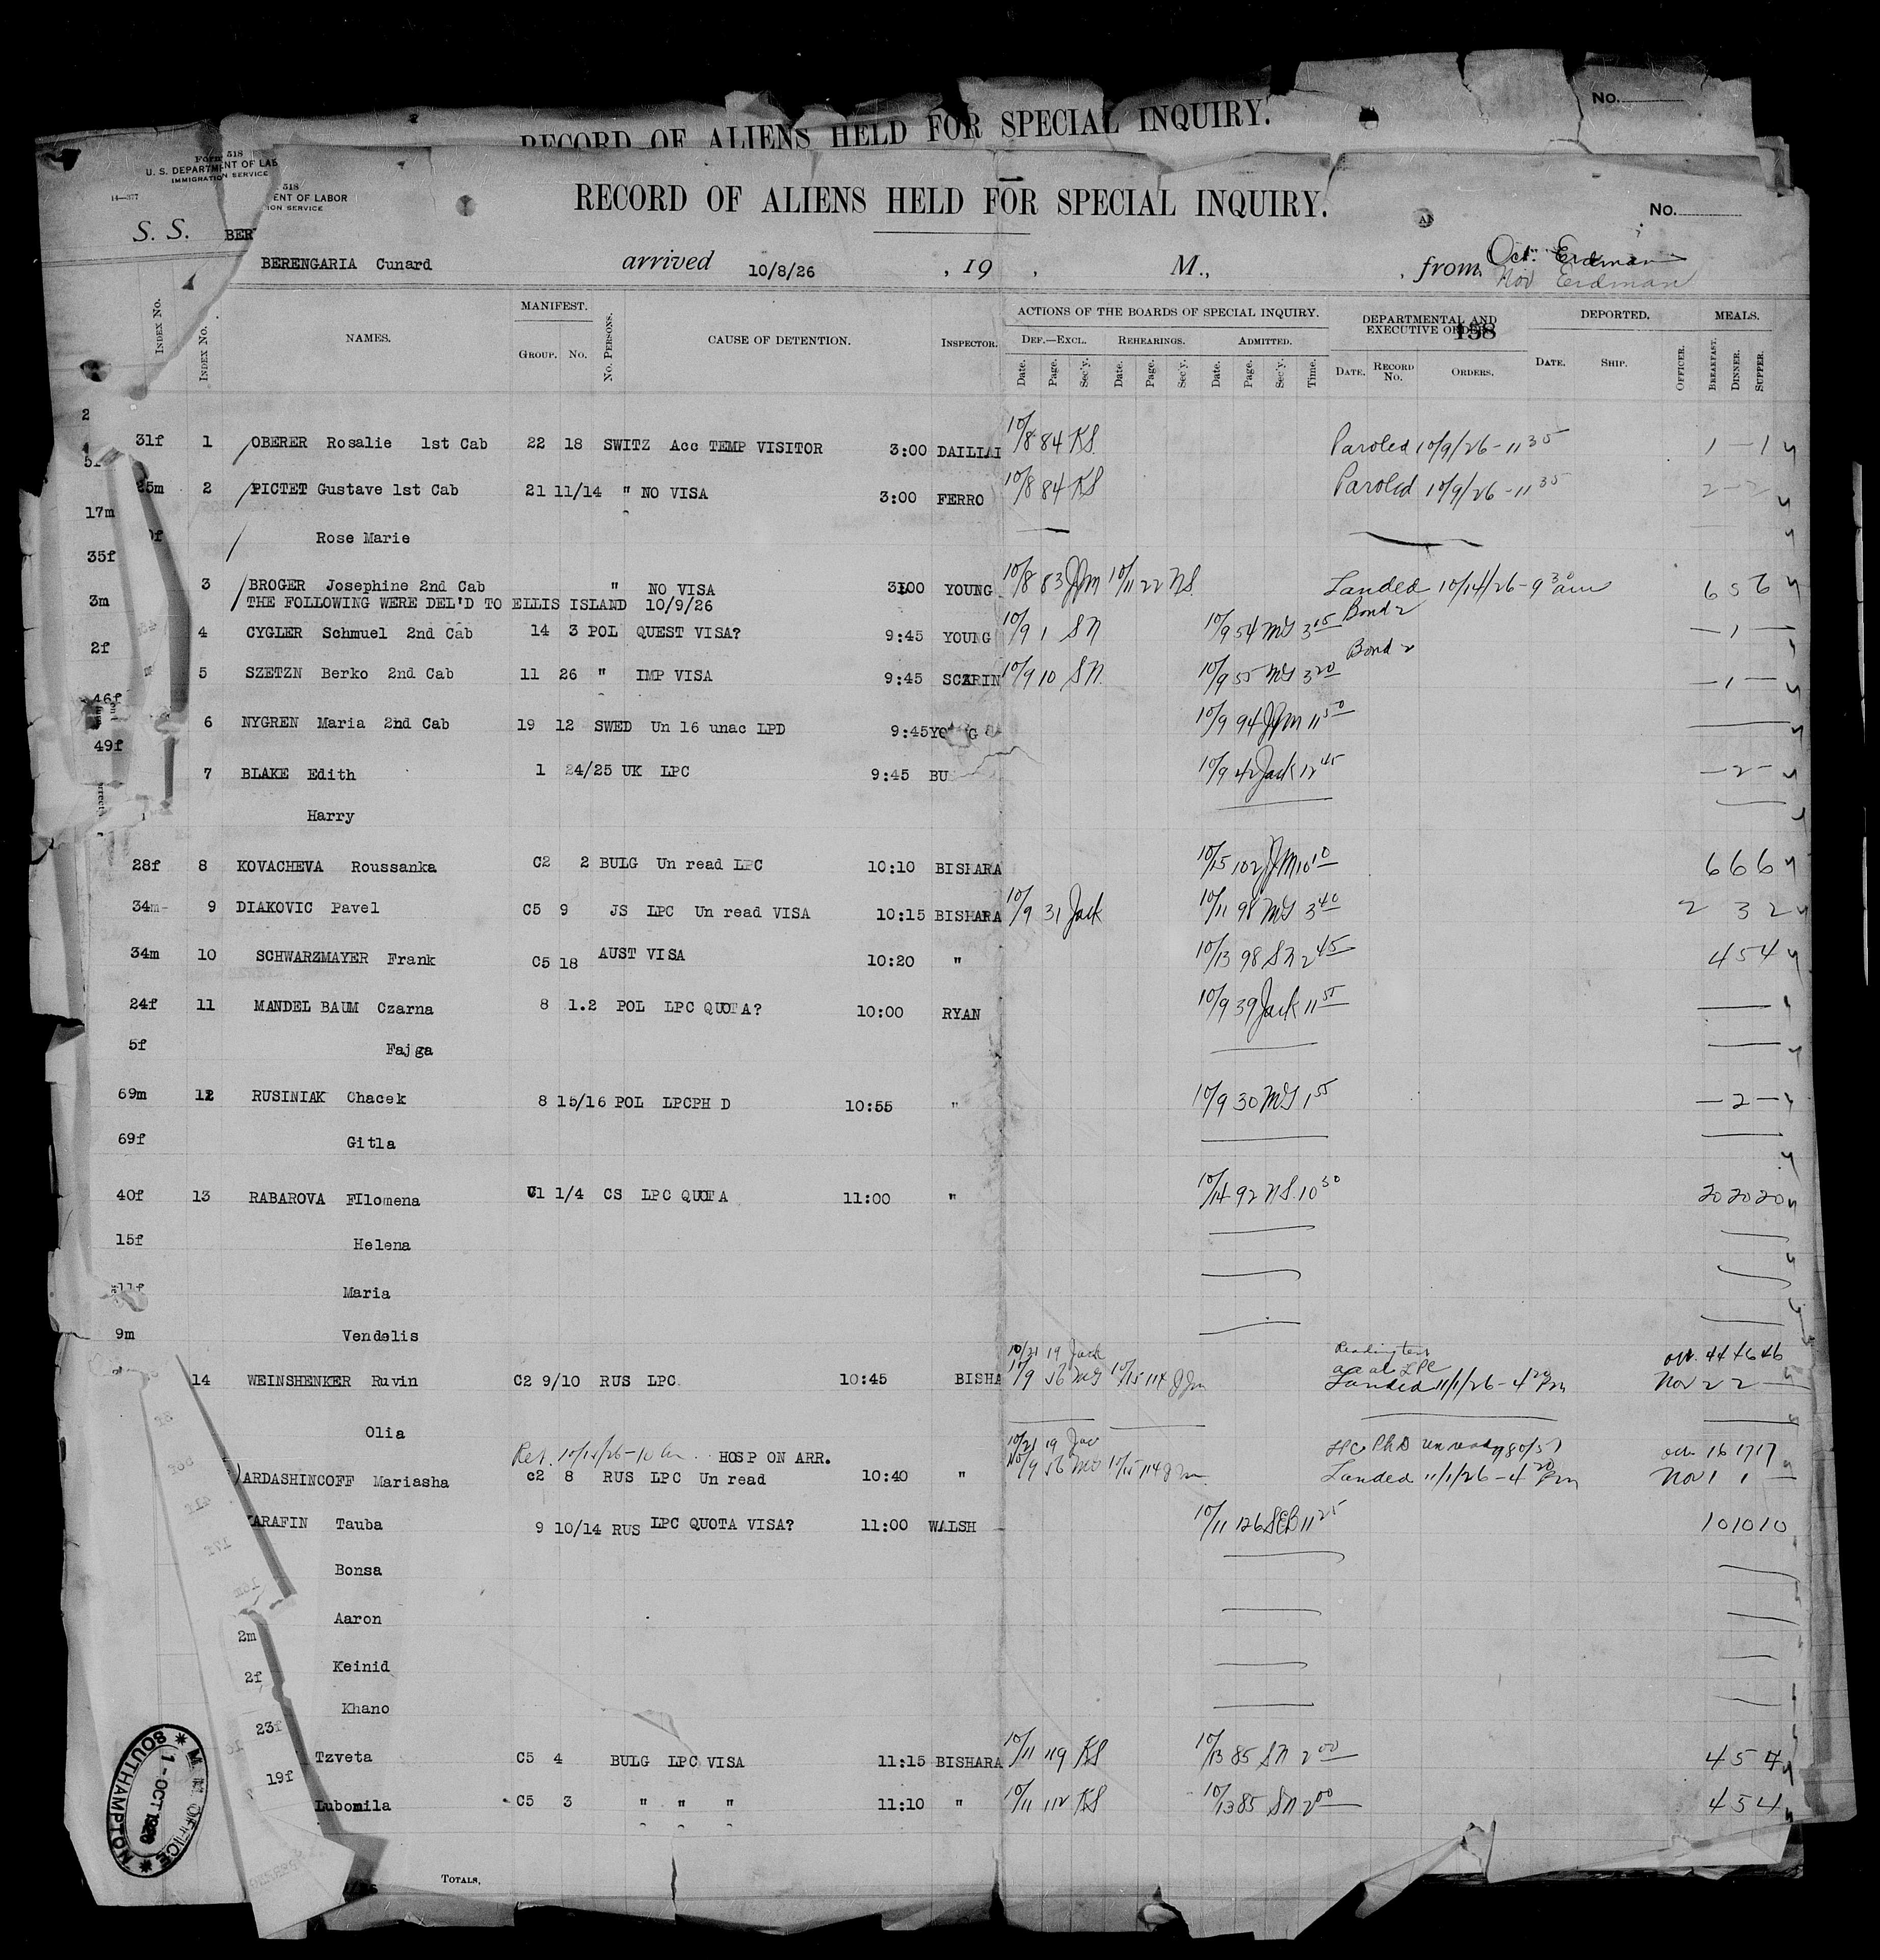 No.
RECORD OF ALIENS HELD FOR SPECIAL INQUIRY.
Form 518
U. S. DEPARTMENT OF LAB
IMMIGRATION SERVICE
14—377
S. S. BER
518
ENT OF LABOR
ION SERVICE
RECORD OF ALIENS HELD FOR SPECIAL INQUIRY.
No.
BERENGARIA Cunard arrived 10/8/26 , 19 , M., , from Oct. Erdman
Nov Erdman
Index No. Index No. NAMES. MANIFEST. Group. No. No. Persons. CAUSE OF DETENTION. Inspector. ACTIONS OF THE BOARDS OF SPECIAL INQUIRY. DEPARTMENTAL AND EXECUTIVE ORDERS. 158 DEPORTED. MEALS.
Def.—Excl. Rehearings. Admitted.
Date. Page. Sec'y. Date. Page. Sec'y. Date. Page. Sec'y. Time. Date. Record No. Orders. Date. Ship. Officer. Breakfast. Dinner. Supper.
2
31f 1 OBERER Rosalie 1st Cab 22 18 SWITZ Acc TEMP VISITOR 3:00 DAILIAI 10/8 84 KS Paroled 10/9/26 - 11 35 1 — 1
25m 2 PICTET Gustave 1st Cab 21 11/14 " NO VISA 3:00 FERRO 10/8 84 KS Paroled 10/9/26 - 11 35 2 — 2
17m
Rose Marie
35f
3 BROGER Josephine 2nd Cab " NO VISA 3:00 YOUNG 10/8 83 JJM 10/11 22 NS Landed 10/14/26 - 9 30 am 6 5 6
3m THE FOLLOWING WERE DEL'D TO ELLIS ISLAND 10/9/26
4 CYGLER Schmuel 2nd Cab 14 3 POL QUEST VISA? 9:45 YOUNG 10/9 1 SN 10/9 54 MG 3 15 Bond — 1 —
2f
5 SZETZN Berko 2nd Cab 11 26 " IMP VISA 9:45 SCARIN 10/9 10 SN 10/9 55 MG 3 20 Bond — 1 —
46f
6 NYGREN Maria 2nd Cab 19 12 SWED Un 16 unac LPD 9:45 10/9 94 JJM 11 50
49f
7 BLAKE Edith 1 24/25 UK LPC 9:45 BU 10/9 42 Jack 12 45 — 2 —
Harry
28f 8 KOVACHEVA Roussanka C2 2 BULG Un read LPC 10:10 BISHARA 10/15 102 JJM 10 10 6 6 6
34m 9 DIAKOVIC Pavel C5 9 JS LPC Un read VISA 10:15 BISHARA 10/9 31 Jack 10/11 98 MG 3 40 2 3 2
34m 10 SCHWARZMAYER Frank C5 18 AUST VISA 10:20 " 10/13 98 SN 2 45 4 5 4
24f 11 MANDEL BAUM Czarna 8 1.2 POL LPC QUOTA? 10:00 RYAN 10/9 39 Jack 11 55
5f Fajga
69m 12 RUSINIAK Chacek 8 15/16 POL LPCPH D 10:55 " 10/9 30 MG 1 55 — 2 —
69f Gitla
40f 13 RABAROVA FIlomena C1 1/4 CS LPC QUOTA 11:00 " 10/14 92 NS 10 30 20 20 20
15f Helena
11f Maria
9m Vendelis
10/21 19 Jack
14 WEINSHENKER Ruvin C2 9/10 RUS LPC 10:45 BISHA 10/9 56 MG 10/15 114 JJM LPC Landed 11/1/26 - 4 20 Pm Oct. 44 46 46
Nov 2 2 —
Olia
Ret. 10/14/26 - 10 am HOSP ON ARR. 10/21 19 Jac
ARDASHINCOFF Mariasha C2 8 RUS LPC Un read 10:40 " 10/9 56 MG 10/15 114 JJM Landed 11/1/26 - 4 20 Pm Oct 16 17 17
Nov 1 1 —
KARAFIN Tauba 9 10/14 RUS LPC QUOTA VISA? 11:00 WALSH 10/11 126 SEB 11 25 10 10 10
Bonsa
Aaron
2m
Keinid
2f
Khano
23f
Tzveta C5 4 BULG LPC VISA 11:15 BISHARA 10/11 119 KS 10/13 85 SN 2 00 4 5 4
19f
Lubomila C5 3 " " " 11:10 " 10/11 112 KS 10/13 85 SN 2 00 4 5 4
OFFICE
1 - OCT 1926
SOUTHAMPTON
TOTALS,